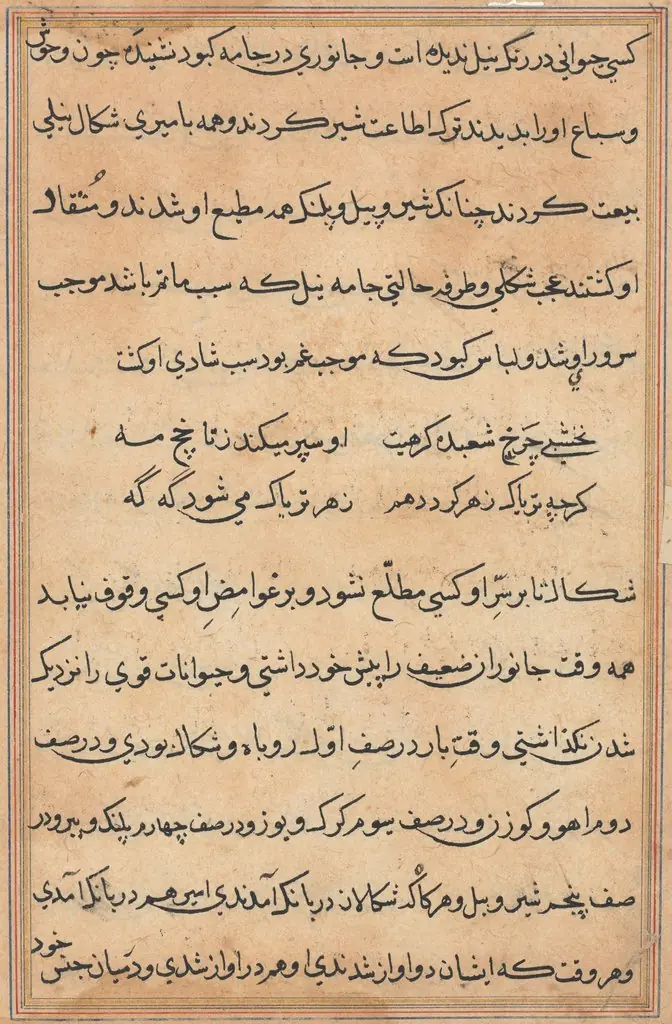 کسي حیواني در رنک نیل ندیده است و جانوري در جامه کبود نشنیده چون وحوش
و سباع او را بدیدند ترک اطاعت شیر کردند و همه بامیري شکال نیلي
بیعت کردند چنانک شیر و پیل و پلنک همه مطیع او شدند و مُنقاد
او کشتند عجب شکلي و طرفه حالتي جامه نیل که سبب ماتم باشد موجب
سرور اوشد و لباس کبود که موجب غم بود سبب شادي او کشت
نخشبي چَرخ شعبده کرهیت او سپر میکند ز تا خج مه
کرچه تریاک زهر کردد هم زهر تریاک مي شود گه گه
شکال تا بر سرِّ او کسي مطلّع نشود و بر غوامِضِ او کسي وقوف نیابد
همه وقت جانوران ضعیف را پیش خود داشتي و حیوانات قوي را نزدیک
شدن نکذاشتي وقتِ بار در صفِ اوّل روباه و شکال بودي و در صف
دوم اهو و کوزن و در صف سوم کرک و یوز و در صف چهارم پلنک و ببر و در
صف پنجم شیر و پیل و هرکاه شکالان در بانک آمدندي اسیر هم در بانک آمدي
و هر وقت که ایشان در اواز شدندي او هم در اواز شدي و در میان جنس خود